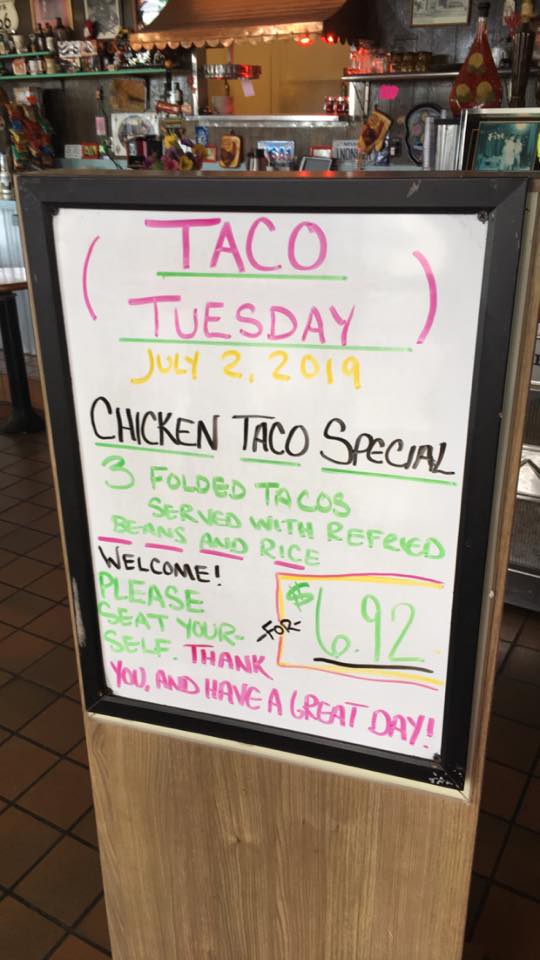 ( TACO
TUESDAY )
JULY 2, 2019
CHICKEN TACO SPECIAL
3 FOLDED TACOS
SERVED WITH REFRIED
BEANS AND RICE
WELCOME!
PLEASE
SEAT YOUR-
SELF. THANK
YOU, AND HAVE A GREAT DAY!
-FOR-
$6.92